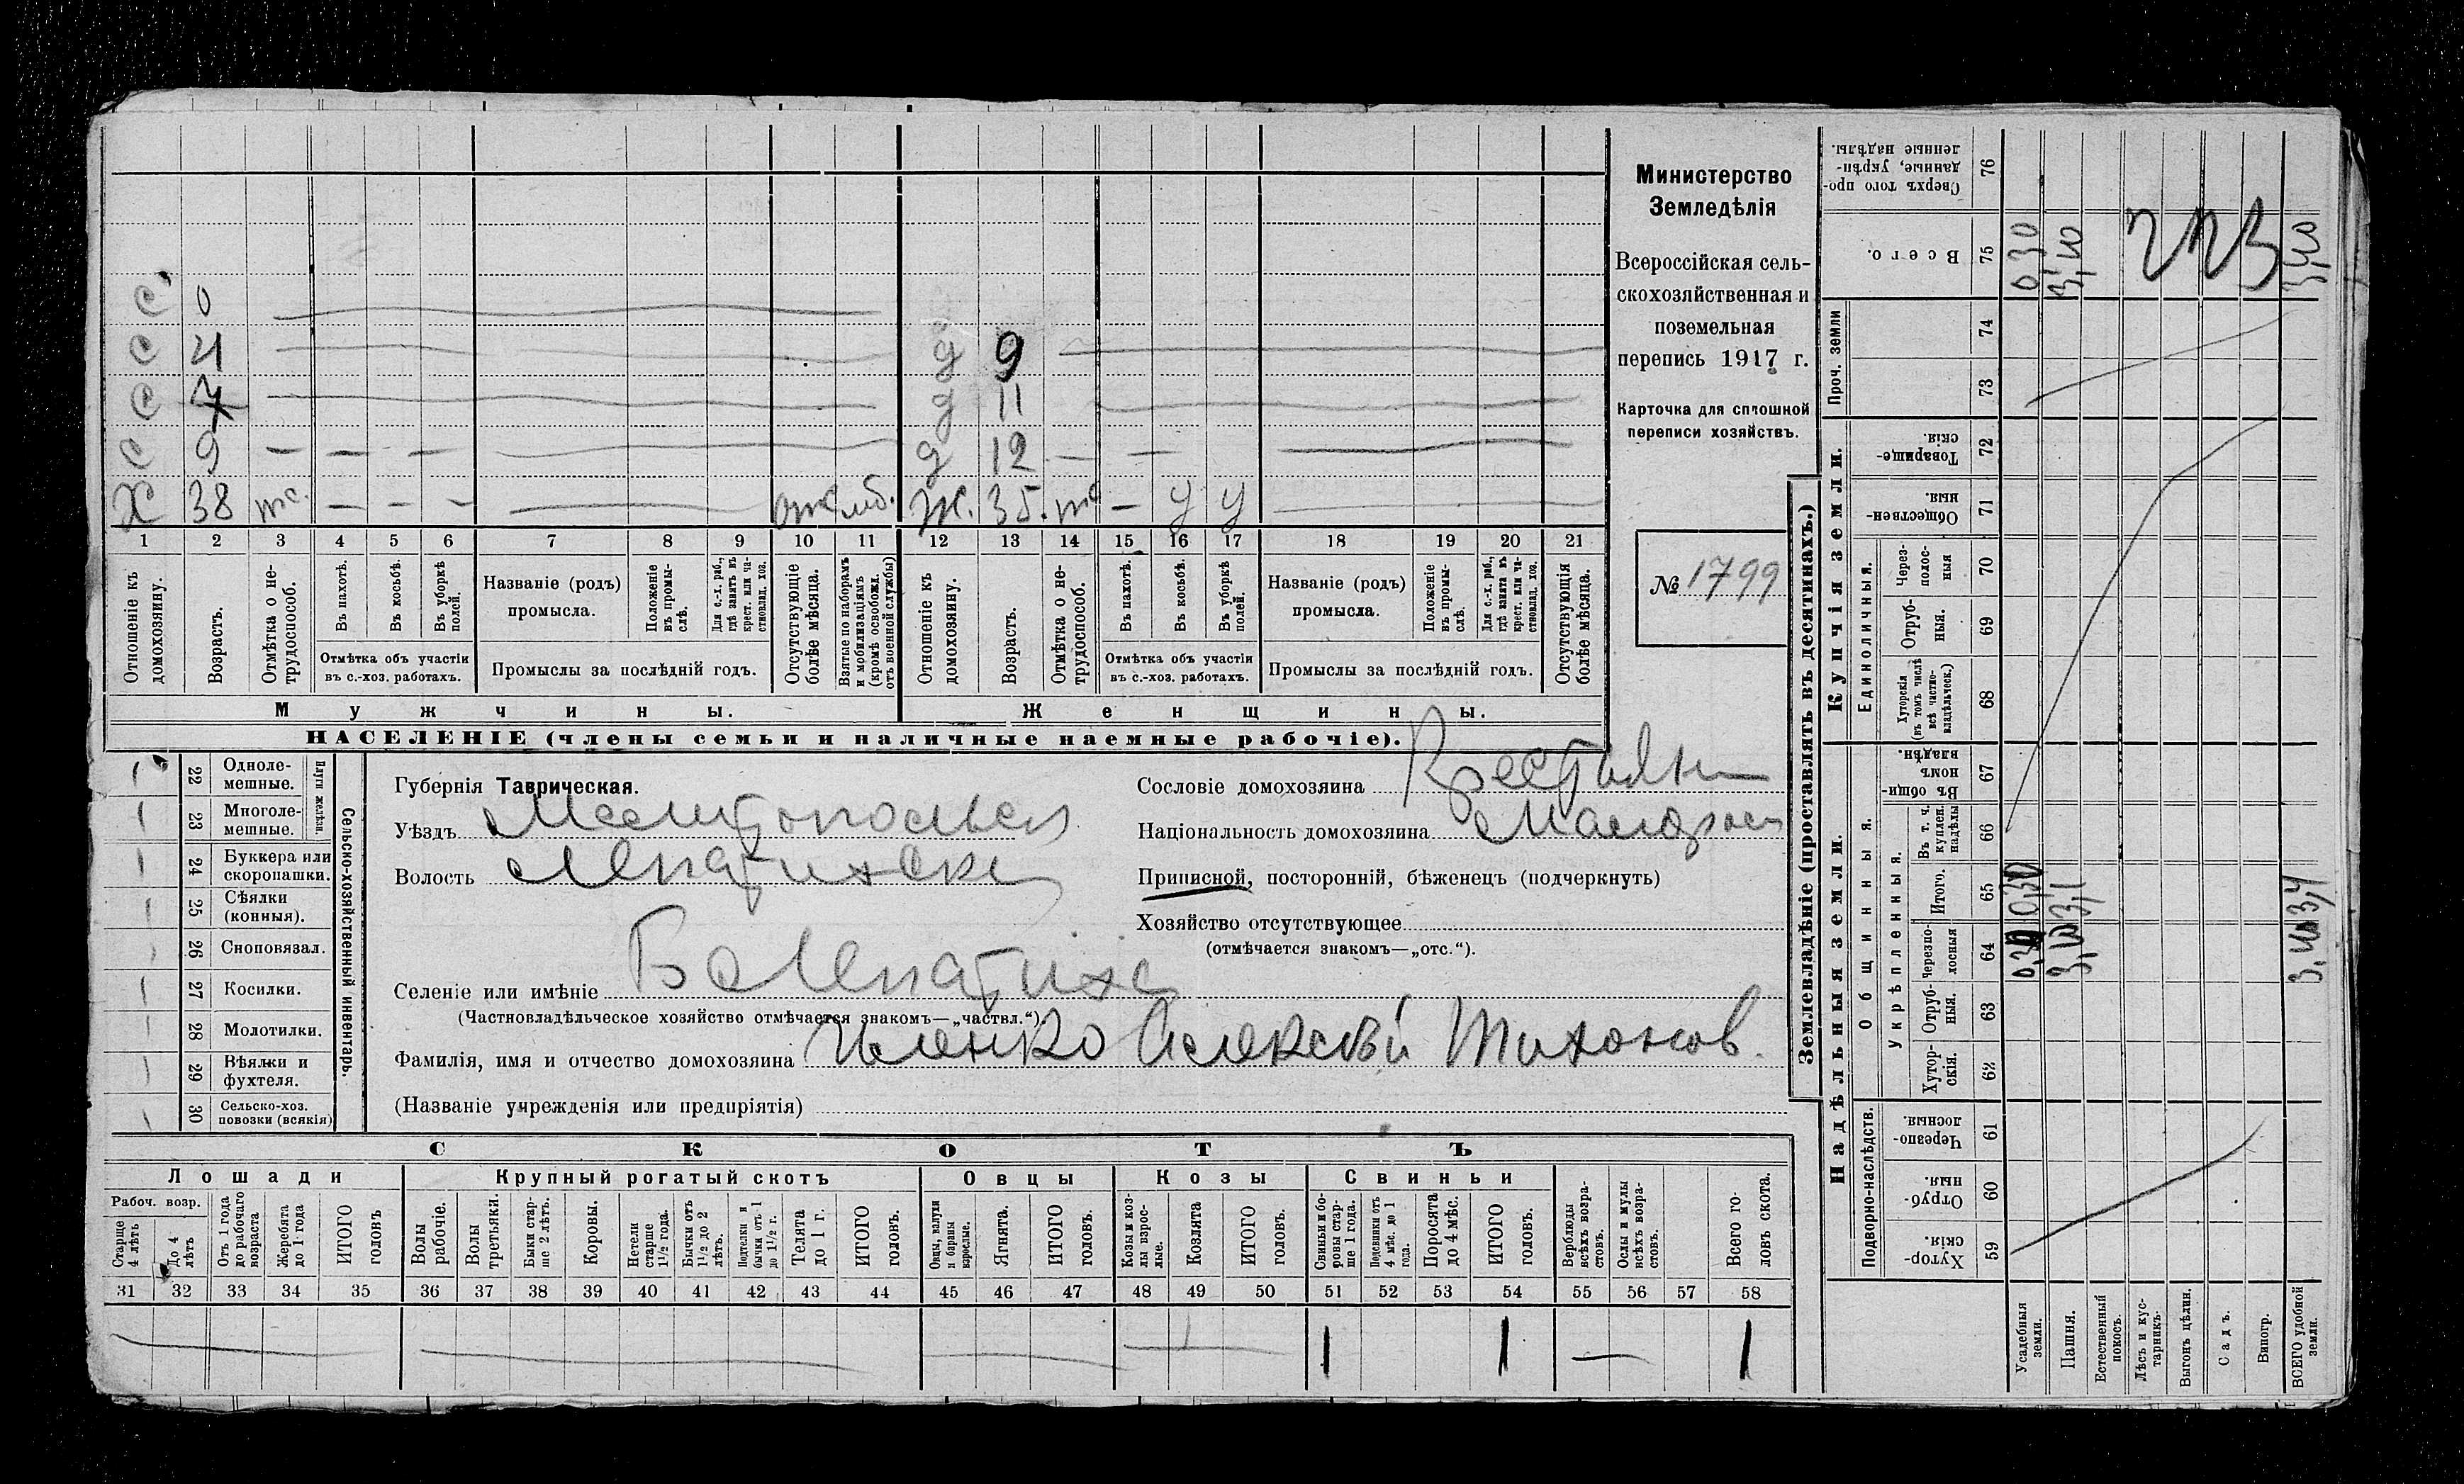 С 0
С 4 д 9
С 7 д 11
С 9 — — — д 12 — —
Х 38 тс. — — — Ж. 35. тс — у у
1 2 3 4 5 6 7 8 9 10 11 12 13 14 15 16 17 18 19 20 21
Отношеніе къ домохозяину.
Возрастъ.
Отмѣтка о не-трудоспособ.
Въ пахотѣ.
Въ косьбѣ.
Въ уборкѣ полей.
Отмѣтка объ участіи въ с.-хоз. работахъ.
Названіе (родъ) промысла.
Положеніе въ промы-слѣ.
Для с.-х. раб., гдѣ занятъ въ крест. или ча-стновлад. хоз.
Промыслы за послѣдній годъ.
Отсутствующіе болѣе мѣсяца.
Взятые по наборамъ и мобилизаціямъ (кромѣ освобожд. отъ военной службы)
Отношеніе къ домохозяину.
Возрастъ.
Отмѣтка о не-трудоспособ.
Въ пахотѣ.
Въ косьбѣ.
Въ уборкѣ полей.
Отмѣтка объ участіи въ с.-хоз. работахъ.
Названіе (родъ) промысла.
Положеніе въ промы-слѣ.
Для с.-х. раб., гдѣ занята въ крест. или ча-стновлад. хоз.
Промыслы за послѣдній годъ.
Отсутствующія болѣе мѣсяца.
Мужчины. Женщины.
НАСЕЛЕНІЕ (члены семьи и наличные наемные рабочіе).
Министерство
Земледѣлія
Всероссійская сель-
скохозяйственная и
поземельная
перепись 1917 г.
Карточка для сплошной
переписи хозяйствъ.
№ 1799
Сельско-хозяйственный инвентарь.
Плуги желѣзн.
22 Одноле-мешные.
23 Многоле-мешные.
24 Буккера или скоропашки.
25 Сѣялки (конныя).
26 Сноповязал.
27 Косилки.
28 Молотилки.
29 Вѣялки и фухтеля.
30 Сельско-хоз. повозки (всякія)
Губернія Таврическая.
Уѣздъ Мелитопольск
Волость Лепатихск
Селеніе или имѣніе Б Лепатиха
(Частновладѣльческое хозяйство отмѣчается знакомъ—„частвл.“)
Фамилія, имя и отчество домохозяина Алексѣй Тихонов.
(Названіе учрежденія или предпріятія)
Сословіе домохозяина Крестьян
Національность домохозяина Малорос
Приписной, посторонній, бѣженецъ (подчеркнуть)
Хозяйство отсутствующее
(отмѣчается знакомъ—„отс.“).
СКОТЪ
Лошади Крупный рогатый скотъ Овцы Козы Свиньи
Рабоч. возр.
Старше 4 лѣтъ
До 4 лѣтъ
Отъ 1 года до рабочаго возраста
Жеребята до 1 года
ИТОГО головъ
Волы рабочіе.
Волы третьяки.
Быки стар-ше 2 лѣтъ.
Коровы.
Нетели старше 1½ года.
Бычки отъ 1½ до 2 лѣтъ.
Подтелки и бычки отъ 1 до 1½ г.
Телята до 1 г.
ИТОГО головъ.
Овцы, валухи и бараны взрослые.
Ягнята.
ИТОГО головъ.
Козы и коз-лы взрос-лые.
Козлята
ИТОГО головъ.
Свиньи и бо-ровы стар-ше 1 года.
Подсвинки отъ 4 мѣс. до 1 года.
Поросята до 4 мѣс.
ИТОГО головъ.
Верблюды всѣхъ возра-стовъ.
Ослы и мулы всѣхъ возра-стовъ.
Всего го-ловъ скота.
31 32 33 34 35 36 37 38 39 40 41 42 43 44 45 46 47 48 49 50 51 52 53 54 55 56 57 58
1 1 — 1
Землевладѣніе (проставлять въ десятинахъ.)
Надѣльныя земли. Купчія земли. Проч. земли
Подворно-наслѣдств.
Общинныя.
Укрѣпленныя.
Единоличныя.
Сверхъ того про-данные, укрѣп-ленные надѣлы. 76
Всего. 75 0,30 3,10 3,40
74
73
Товарище-скія. 72
Обществен-ныя. 71
Через-полос-ныя 70
Отруб-ныя. 69
Хуторскія (въ томъ числѣ всѣ частно-владѣльческ.) 68
Въ общи-номъ владѣн. 67
Въ т. ч. куплен. надѣлы 66
Итого. 65 0,30 3,1 3,4
Черезпо-лосныя 64 0,30 3,10 3,40
Отруб-ныя. 63
Хутор-скія. 62
Черезпо-лосныя. 61
Отруб-ныя. 60
Хутор-скія. 59
Усадебныя земли.
Пашня.
Естественный покосъ.
Лѣсъ и кус-тарникъ.
Выгонъ цѣлин.
Садъ.
Виногр.
ВСЕГО удобной земли.